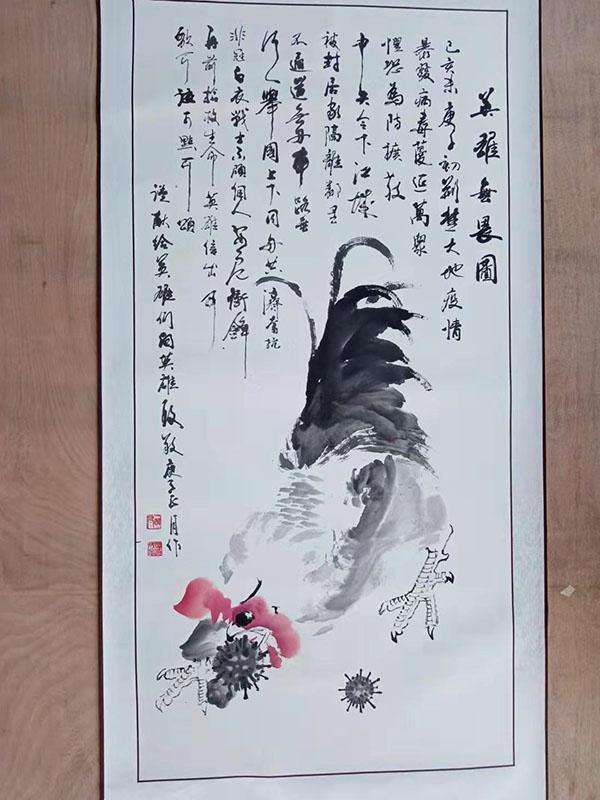 英雄無畏圖
己亥末庚子初荆楚大地疫情
暴發病毒蔓延萬眾
惶恐為防擴散
中央令下江城
被封居家隔離鄰里
不通道無舟車路無
行人舉國上下同舟共濟奮抗
白衣戰士不顧個人安危衝鋒
在前搶救生命英雄倍出可
歌可泣可點可頌
謹獻給英雄們向英雄致敬庚子正月作